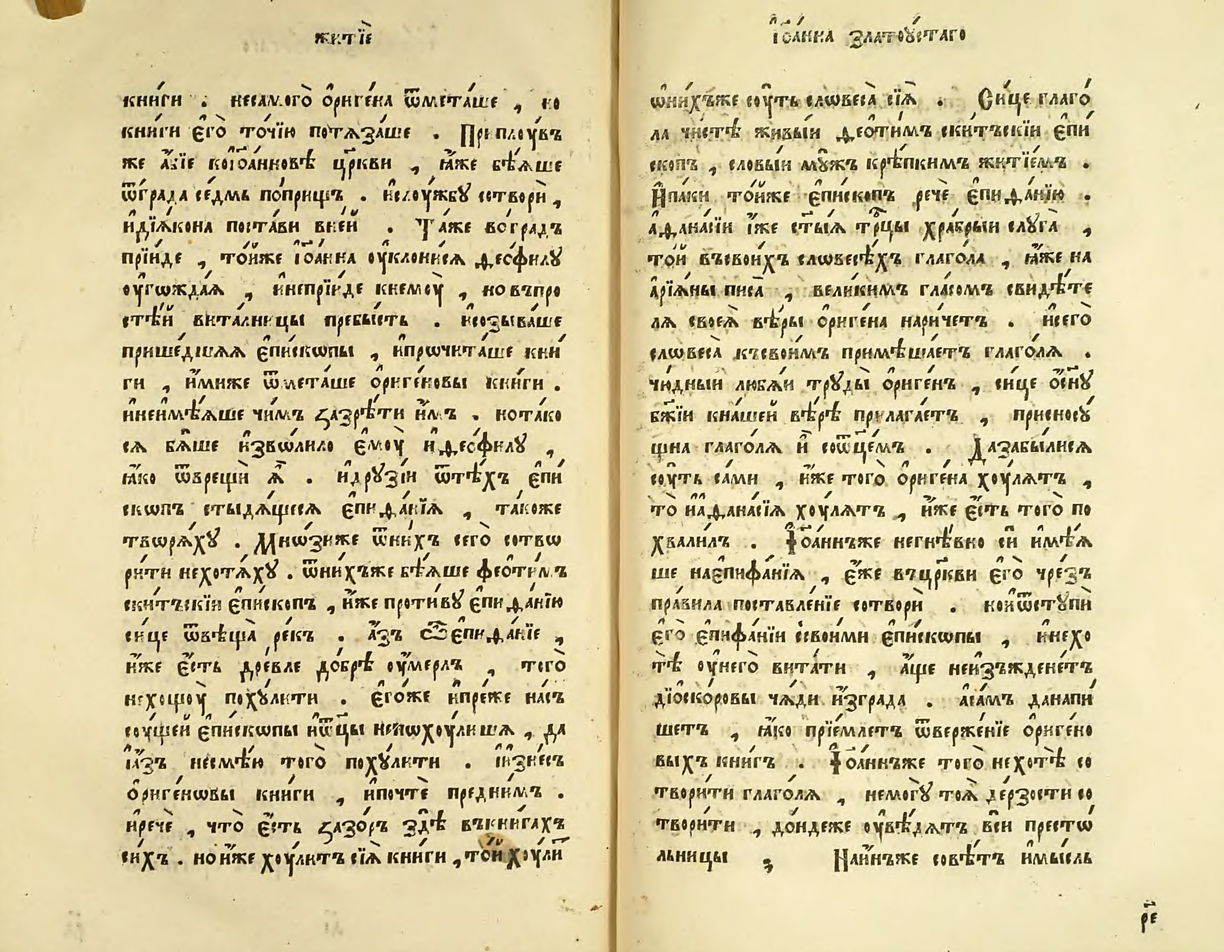 житїѐ
книги . несамого̀ ѻ҆риге́на ѿмета́ше , но
книги є҆го̀ то́чїю потѧза́ше . Приплоу́въ
же а҆́бїе коїѡа́нновѣ цр҃кви , ꙗ҆́же бѣ́ѧше
ѿгра́да се́дмь по́прищъ . ислоу́жбꙋ сотворѝ ,
идїѧ́кона поста́ви вне́й . Та́же во́градъ
прїи́де , то́йже і҆ѡа́нна оу҆клони́сѧ ѳео́филꙋ
оу҆гожда́ѧ , инепрїи́де кнемоу̀ , но въпро
стѣ́й вита́лницы пребы́сть . исозыва́ше
прише́дшаѧ є҆пи́скѡпы , ипрѡчита́ше кни́
ги , и҆́миже ѿмета́ше ѻ҆риге́новы кни́ги .
инеимѣ́ѧше чи́мъ ꙁазрѣ́ти и҆̀мъ . нота́ко
сѧ бѧ́ше и҆зво́лило є҆моу̀ иѳео́филꙋ ,
ꙗ҆́ко ѿврещѝ ѧ҆̀ . идрꙋзі́и ѿтѣ́хъ є҆пи́
скѡпъ стыдѧ́щесѧ є҆пиѳа́нїѧ , та́коже
твѡрѧ́хꙋ . Мно́зиже ѿни́хъ сего̀ сотвѡ
ри́ти нехотѧ́хꙋ . ѿни́хъже бѣ́ѧше ѳеоти́мъ
ски́тъскїи є҆пи́скопъ , и҆́же проти́вꙋ є҆пиѳа́нїю
си́це ѿвѣща̀ ре́къ . а҆́зъ ѽ є҆пиѳа́нїе ,
и҆́же є҆́сть дре́вле до́брѣ оу҆́мерлъ , того̀
нехощоу̀ похꙋ́лити . є҆го́же ипре́же на́съ
соу́щей є҆пи́скопы иѿцы̀ ненѡхоу́лишѧ , да
іа҆́зъ несмѣ́ю того̀ похꙋ́лити . іи҆зне́съ
ѻ҆риге́нѡвы кни́ги , ипочтѐ предни́мъ .
иречѐ , что̀ є҆́сть ꙁазо́ръ здѣ̀ въкни́гахъ
си́хъ . но и҆́же хоу́литъ сїѧ̀ кни́ги , то́й хоу́ли
і҆ѡа́нна златоꙋ́стаго
ѡни́хъже соу́ть слѡвеса̀ сїѧ̀ . Си́це глаго́
ла чи́стѣ живы́и ѳеоти́мъ ски́тъскїи є҆пи́
скопъ , словы́и мꙋ́жъ крѣ́пкимъ житїе́мъ .
Ипа́ки то́йже є҆пи́скопъ речѐ є҆пиѳа́нїю .
аѳана́сїи і҆́же ст҃ы́ѧ тр҃цы хра́брыи слꙋга̀ ,
то́й въсвои́хъ слѡвесѣ́хъ глаго́ла , ꙗ҆́же на
а҆рїѧ́ны писа̀ , вели́кимъ гла́сомъ свидѣ́те
лѧ своеѧ̀ вѣ́ры ѻ҆риге́на нарече́тъ . исего̀
слѡвеса̀ къ свои́мъ примѣша́етъ глаго́лѧ .
чю́дныи любѧ́и трꙋды̀ ѻ҆риге́нъ , си́це ѻ҆́снꙋ
бж҃їи кна́шей вѣ́рѣ прилага́етъ , присносꙋ́
щна глаго́лѧ и҆̀ соѿце́мъ . Дазабы́лисѧ
соу́ть са́ми , и҆́же того̀ ѻ҆риге́на хоу́лѧтъ ,
то̀ иа҆ѳана́сїѧ хоу́лѧтъ , и҆́же є҆́сть того̀ по
хвали́лъ . І҆ѡа́ннъже негнѣ́вно сѝ и҆мѣ́ѧ
ше наепифа́нїѧ , є҆́же въцр҃кви є҆го̀ чре́зъ
пра́вила поставле́нїе сотворѝ . ноиѿстꙋпѝ
є҆го̀ є҆пифа́нїи ссвои́ми є҆пи́скѡпы , инехо
тѣ̀ оу҆него̀ вита́ти , а҆́ще неи҆зъжене́тъ
дїоско́ровы ча́ди и҆зъгра́да . аса́мъ данапи́
шетъ , ꙗ҆́ко прїе́млетъ ѿверже́нїе ѻ҆риге́но
выхъ кни́гъ . І҆ѡа́ннъже того̀ нехотѣ̀ со
твори́ти глаго́лѧ , немогꙋ̀ тоѧ̀ де́рзости со
твори́ти , до́ндеже оу҆вѣ́дѧтъ всѝ престѡ́
льницы ; Наи́нъже совѣ́тъ и҆мы́сль
ре҃